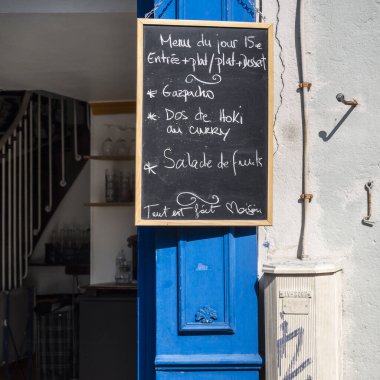 Menu du jour 15€
Entrée + plat / plat + Dessert
* Gazpacho
* Dos de Hoki
au curry
* Salade de fruits
Tout est fait Maison